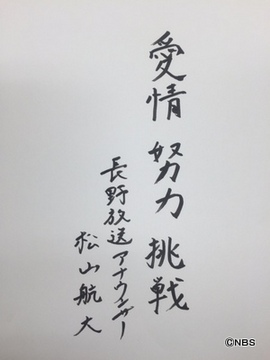 愛情 努力 挑戦
長野放送アナウンサー
松山航大
©NBS